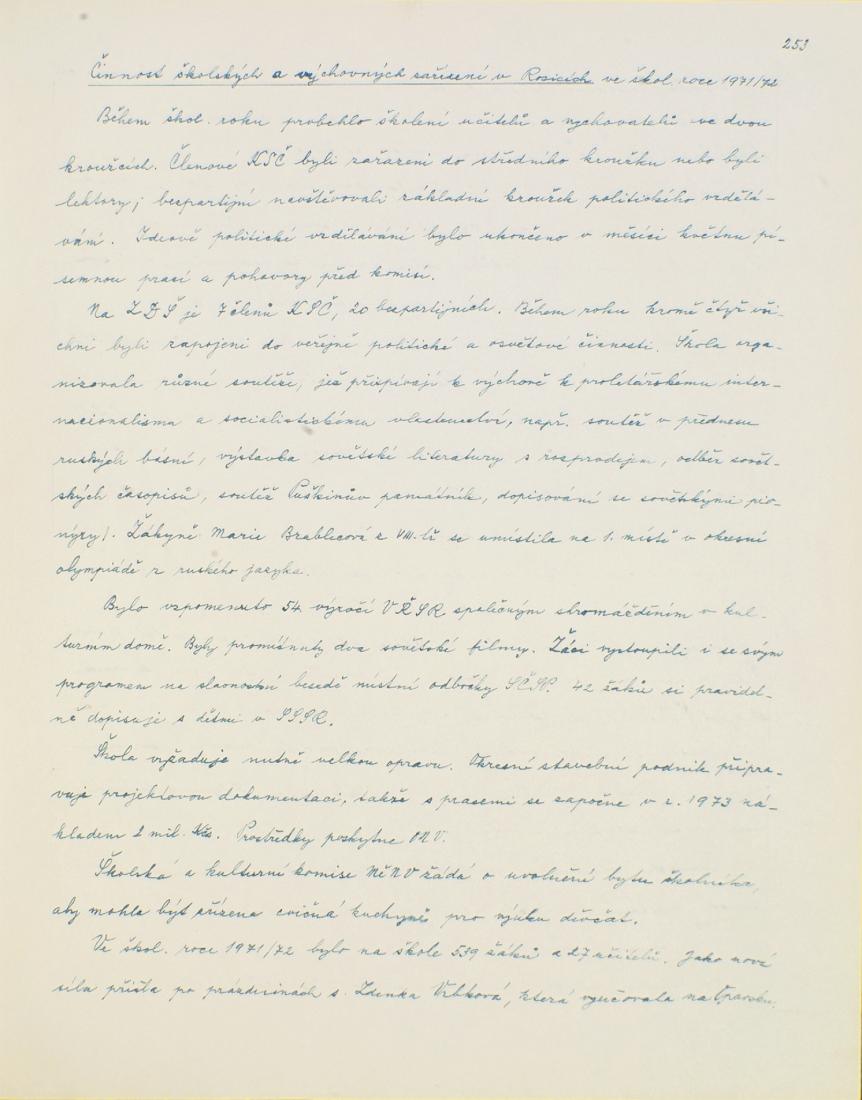 253
Činnost školských a výchovných zařízení v Rosicích ve škol. roce 1971/72
Během škol. roku proběhlo školení učitelů a vychovatelů ve dvou
kroužcích. Členové KSČ byli zařazeni do středního kroužku nebo byli
lektory; bezpartijní navštěvovali základní kroužek politického vzdělá-
vání. Ideově politické vzdělávání bylo ukončeno v měsíci květnu pí-
semnou prací a pohovory před komisí.
Na ZDŠ je 7 členů KSČ, 20 bezpartijních. Během roku kromě čtyř vši-
chni byli zapojeni do veřejně politické a osvětové činnosti. Škola orga-
nizovala různé soutěže, jež přispívají k výchově k proletářskému inter-
nacionalismu a socialistickému vlastenectví, např. soutěž v přednesu
ruských básní, výstavka sovětské literatury s rozprodejem, odběr sovět-
ských časopisů, soutěž Puškinův památník, dopisování se sovětskými pio-
nýry). Žákyně Marie Brablecová z VIII. tř se umístila na 1. místě v okresní
olympiádě z ruského jazyka.
Bylo vzpomenuto 54. výročí VŘSR společným shromážděním v kul-
turním domě. Byly promítnuty dva sovětské filmy. Žáci vystoupili i se svým
programem na slavnostní besedě místní odbočky SČSP. 42 žáků si pravidel-
ně dopisuje s dětmi v SSSR.
Škola vyžaduje nutně velkou opravu. Okresní stavební podnik připra-
vuje projektovou dokumentaci, takže s pracemi se započne v r. 1973 ná-
kladem 2 mil. Kčs. Prostředky poskytne ONV.
Školská a kulturní komise MěNV žádá o uvolnění bytu školníka,
aby mohla být zřízena cvičná kuchyně pro výuku děvčat.
Ve škol. roce 1971/72 bylo na škole 539 žáků a 27 učitelů. Jako nová
síla přišla po prázdninách s. Zdenka Vrbková, která vyučovala na